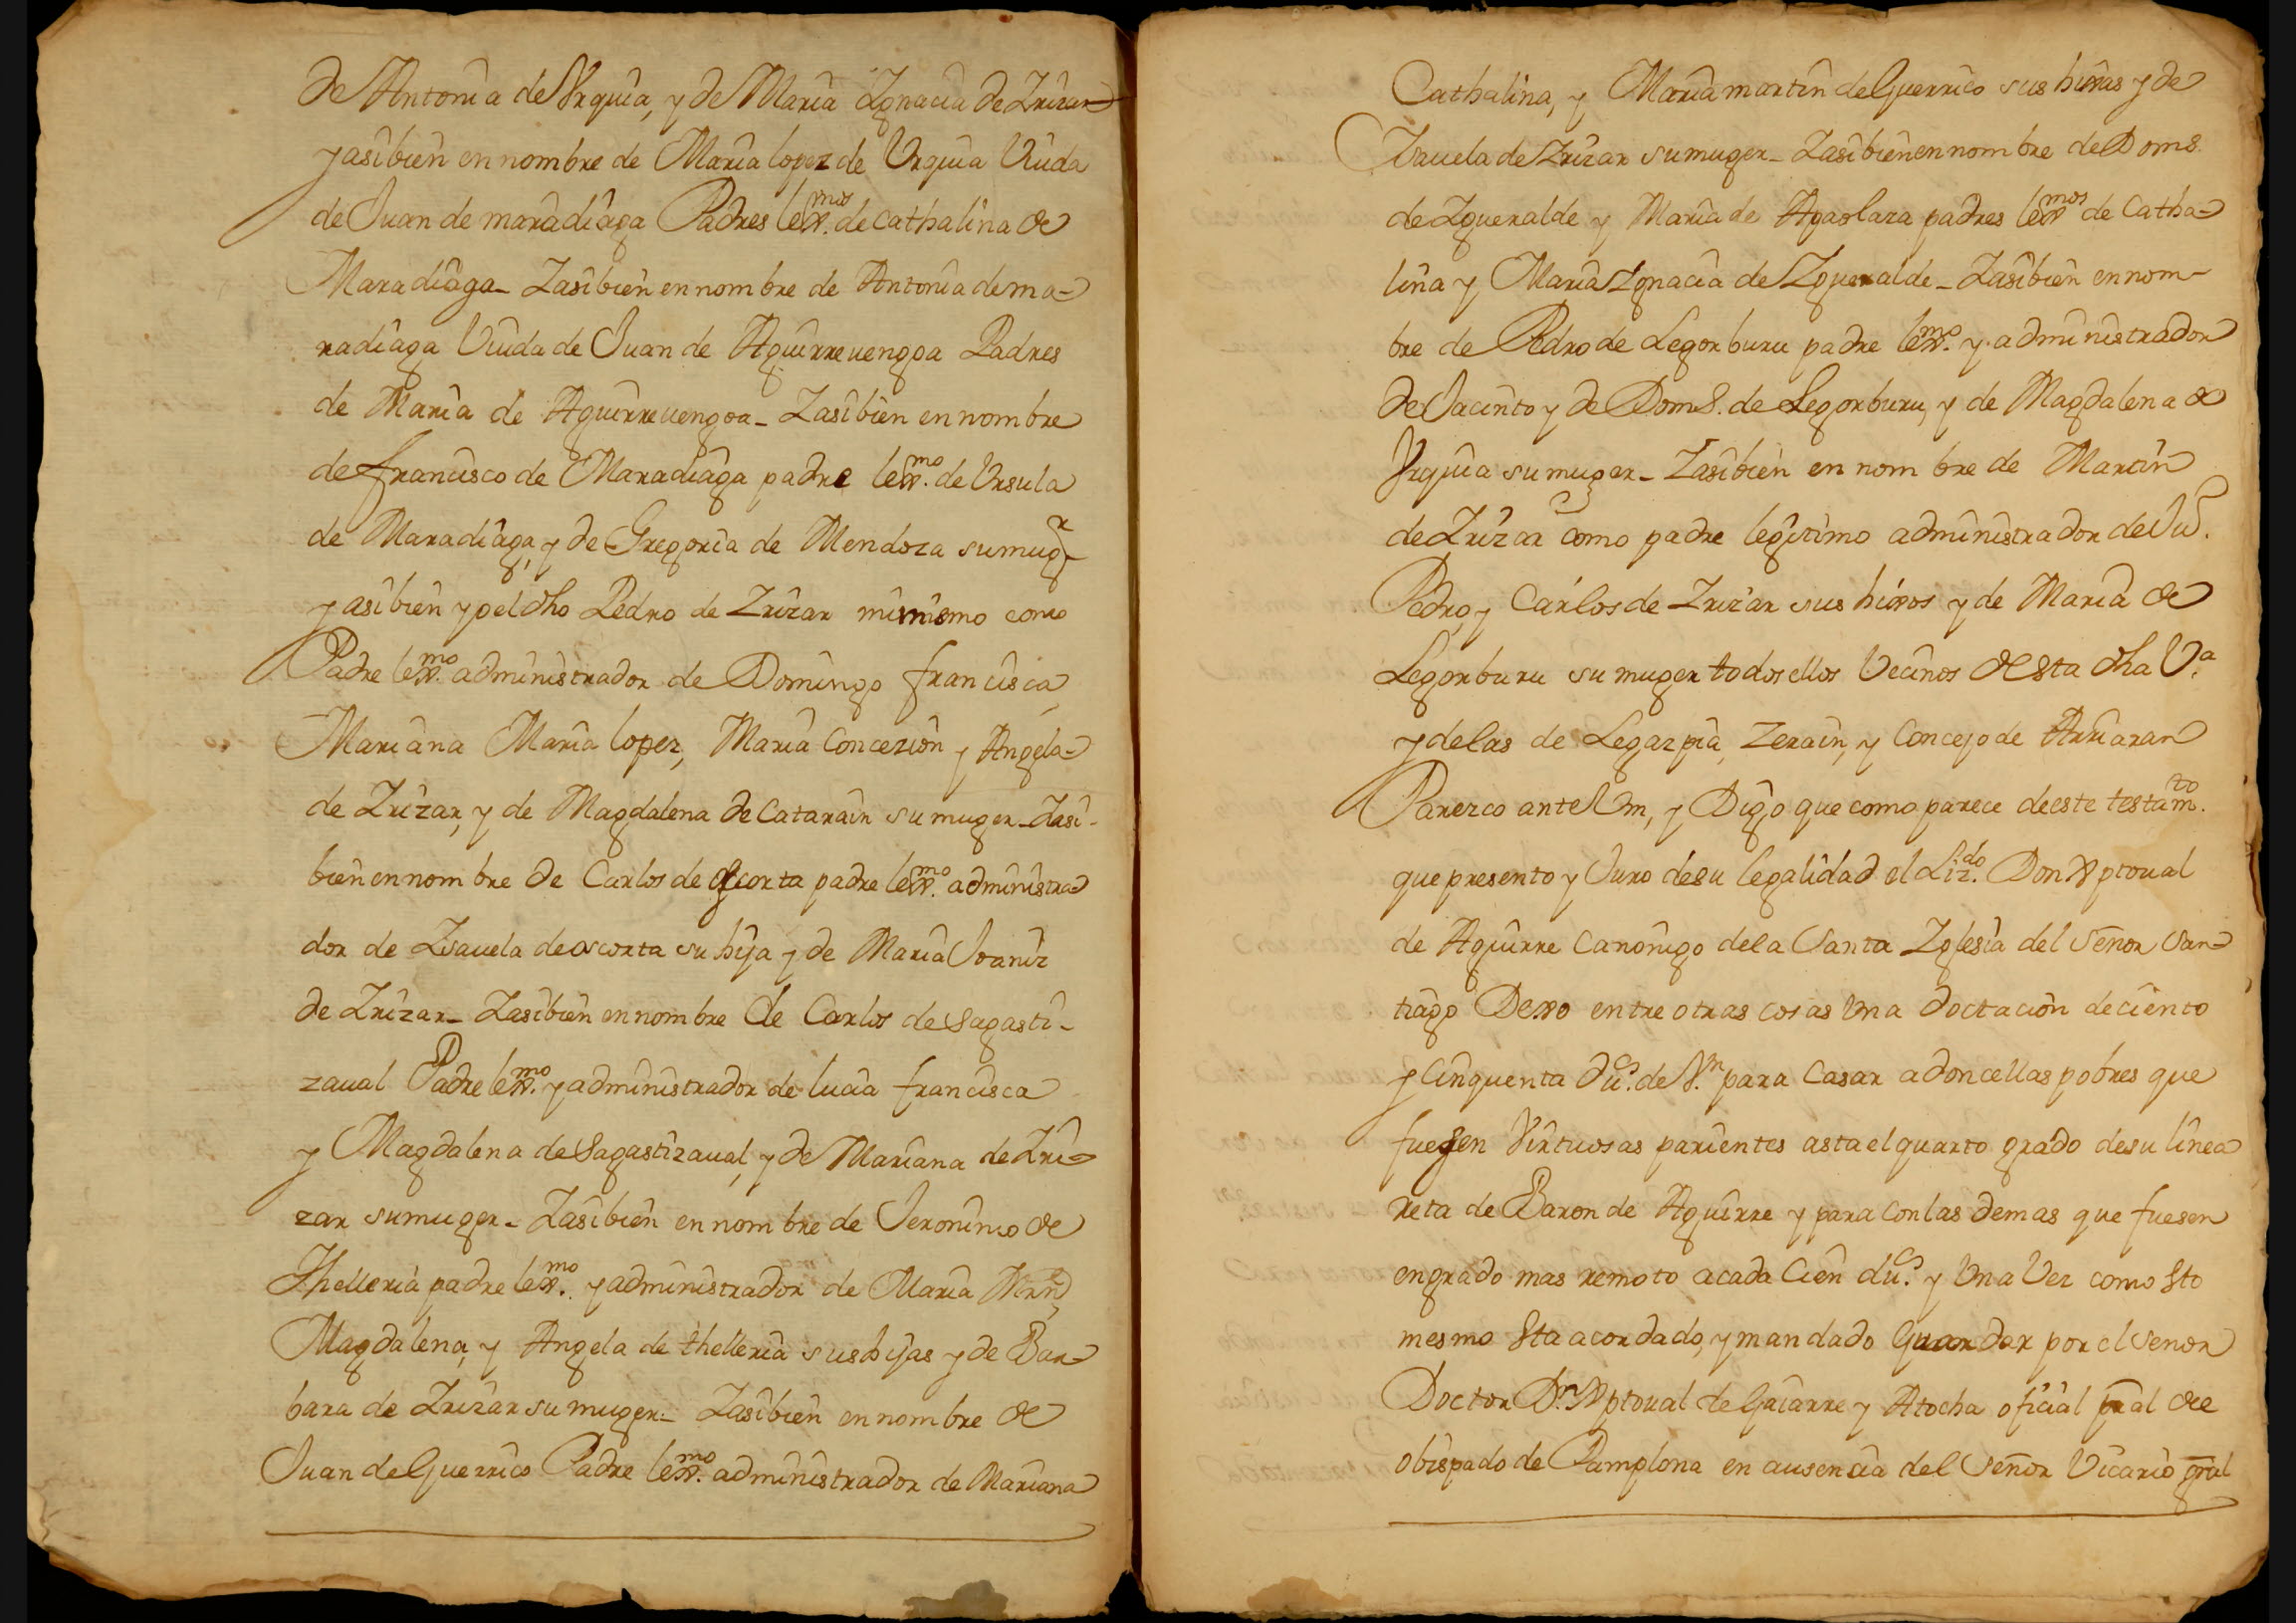 de Antonia de Vrquia, y de Maria Ignacia de Irizar
y asibien en nombre de Maria lopez de Vrquia Viuda
de Juan de maradiaga Padres lexmos. de cathalina de
Maradiaga - Iasibien en nombre de Antonia de ma-
radiaga Viuda de Juan de Aguirreuengoa Padres
de Maria de Aguirreuengoa - Iasibien en nombre
de francisco de Maradiaga padre lexmo. de Vrsula
de Maradiaga, y de Gregoria de Mendoza su mugr
y asibien yo el dho Pedro de Irizar mismo como
Padre lexmo. administrador de Domingo francisca
Mariana Maria lopez, Maria Concezion y Angela
de Irizar, y de Magdalena de Catarain su muger - Iasi-
bien en nombre de Carlos de ascorta padre lexmo. administra
dor de Isauela de ascorta su hija y de Maria Joaniz
de Irizar - Iasibien en nombre de Carlos de sagasti-
zaual Padre lexmo. y administrador de lucia francisca
y Magdalena de sagastizaual, y de Mariana de Iri-
zar su muger - Iasibien en nombre de Jeronimo de
Thelleria padre lexmo. y administrador de Maria
Magdalena, y Angela de thelleria sus hijas y de Bar-
bara de Irizar su muger - Iasibien en nombre de
Juan de Guerrico Padre lexmo. administrador de Mariana
Cathalina, y Maria martin de Guerrico sus hixas y de
Isauela de Irizar su muger - Iasibien en nombre de Doms.
de Igueralde y Maria de Agaolaza padres lexmos de Catha-
lina y Maria Ignacia de Igueralde - Iasibien en nom-
bre de Pedro de Legorburu padre lexmo. y administrador
de Jacinto y de Doms. de Legorburu, y de Magdalena de
Vrquia su muger - Iasibien en nombre de Martin
de Irizar como padre legitimo administrador de Ju.
Pedro, y Carlos de Irizar sus hixos y de Maria de
Legorburu su muger todos ellos Vecinos de esta dha Va.
y de las de Legazpia, Zerain, y Concejo de Arriaran
Parezco ante Vm, y Digo que como parece de este testamto.
que presento y Juro de su legalidad el Lizdo. Don Xptoual
de Aguirre Canonigo de la Santa Iglesia del Señor San-
tiago Dexo entre otras cosas Vna doctacion de ciento
y Cinquenta dus. de Vn. para Casar a doncellas pobres que
fuesen Virtuosas parientes asta el quarto grado de su linea
reta de Baron de Aguirre y para con las demas que fuesen
en grado mas remoto a cada Cien dus. y Vna Vez como sto
mesmo sta acordado, y mandado Guardar por el señor
Doctor Dn. Xptoual de Guiarre y Atocha oficial pral de
obispado de Pamplona en ausencia del Señor Vicario gral